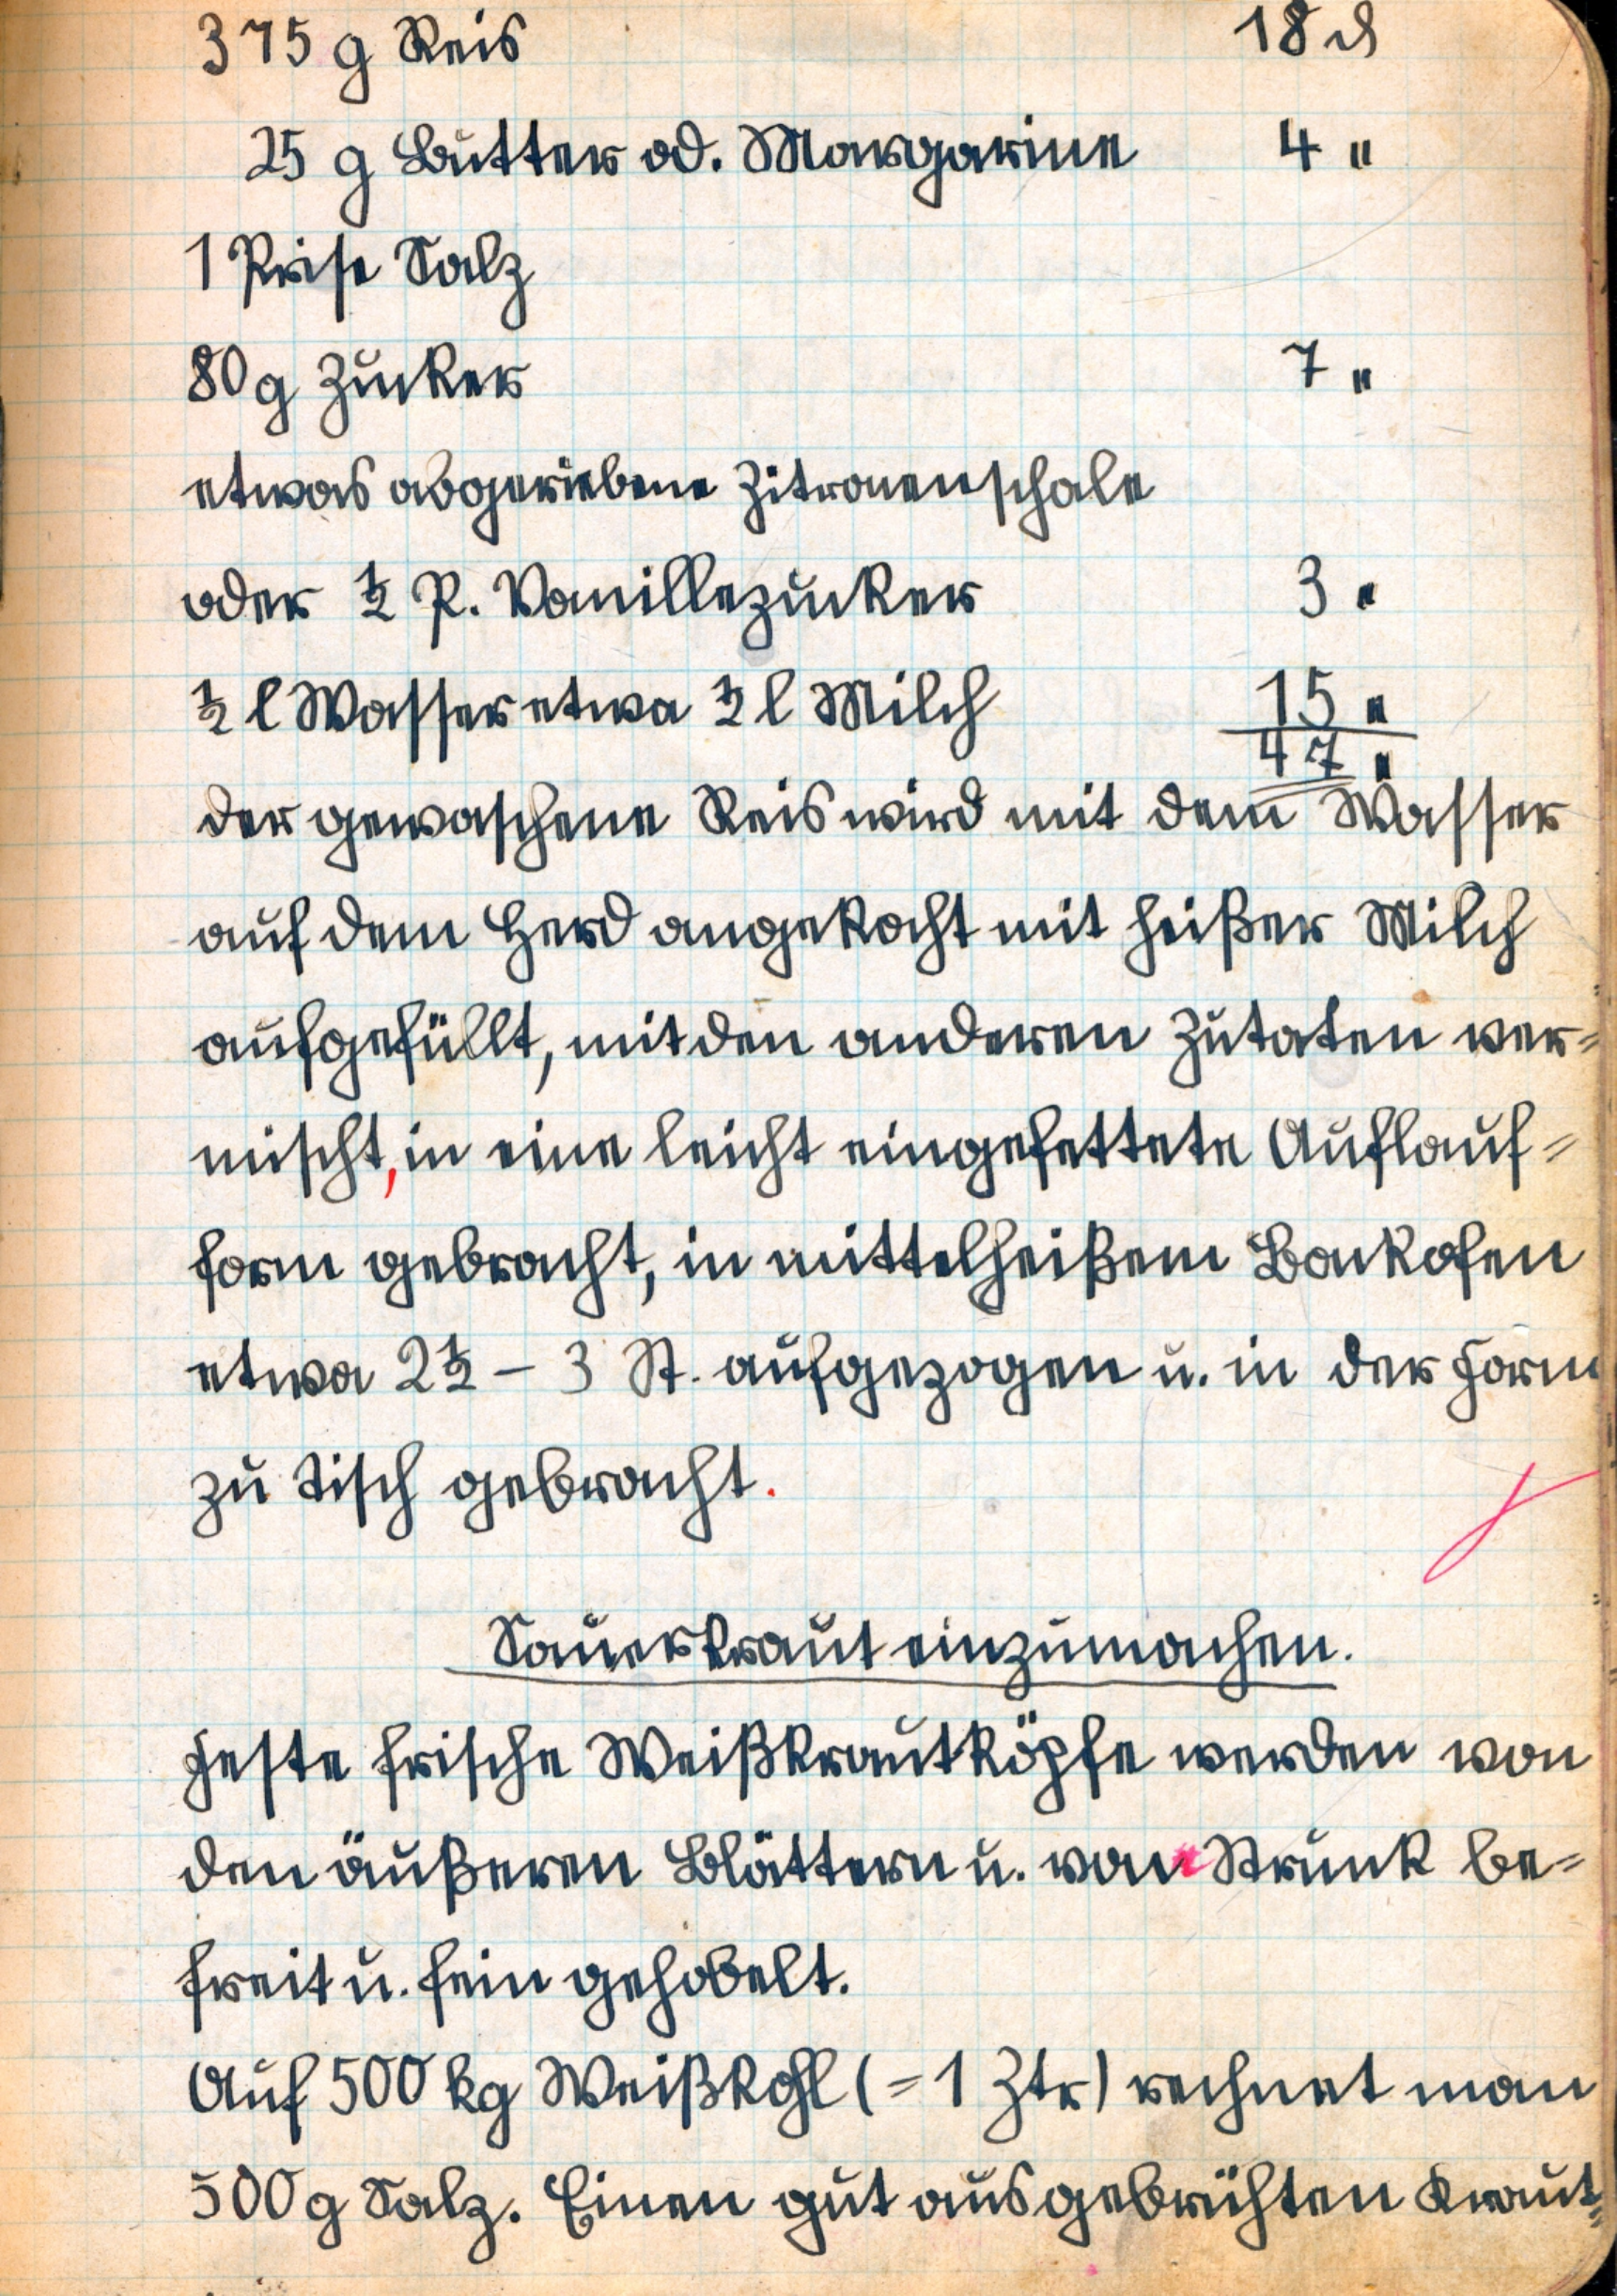 375 g Reis 18 ₰
25 g Butter od. Margarine 4 "
1 Prise Salz
80 g Zucker 7 "
etwas abgeriebene Zitronenschale
oder ½ P. Vanillezucker 3 "
½ l Wasser etwa ½ l Milch 15 "
47 "
der gewaschene Reis wird mit dem Wasser
auf dem Herd angekocht mit heißer Milch
aufgefüllt, mit den anderen Zutaten ver=
mischt, in eine leicht eingefettete Auflauf=
form gebracht, in mittelheißem Backofen
etwa 2½ – 3 St. aufgezogen u. in der Form
zu Tisch gebracht.
Sauerkraut einzumachen.
Feste frische Weißkrautköpfe werden von
den äußeren Blättern u. vom Strunk be=
freit u. fein gehobelt.
Auf 500 kg Weißkohl (= 1 Ztr) rechnet man
500 g Salz. Einen gut ausgebrühten Kraut=